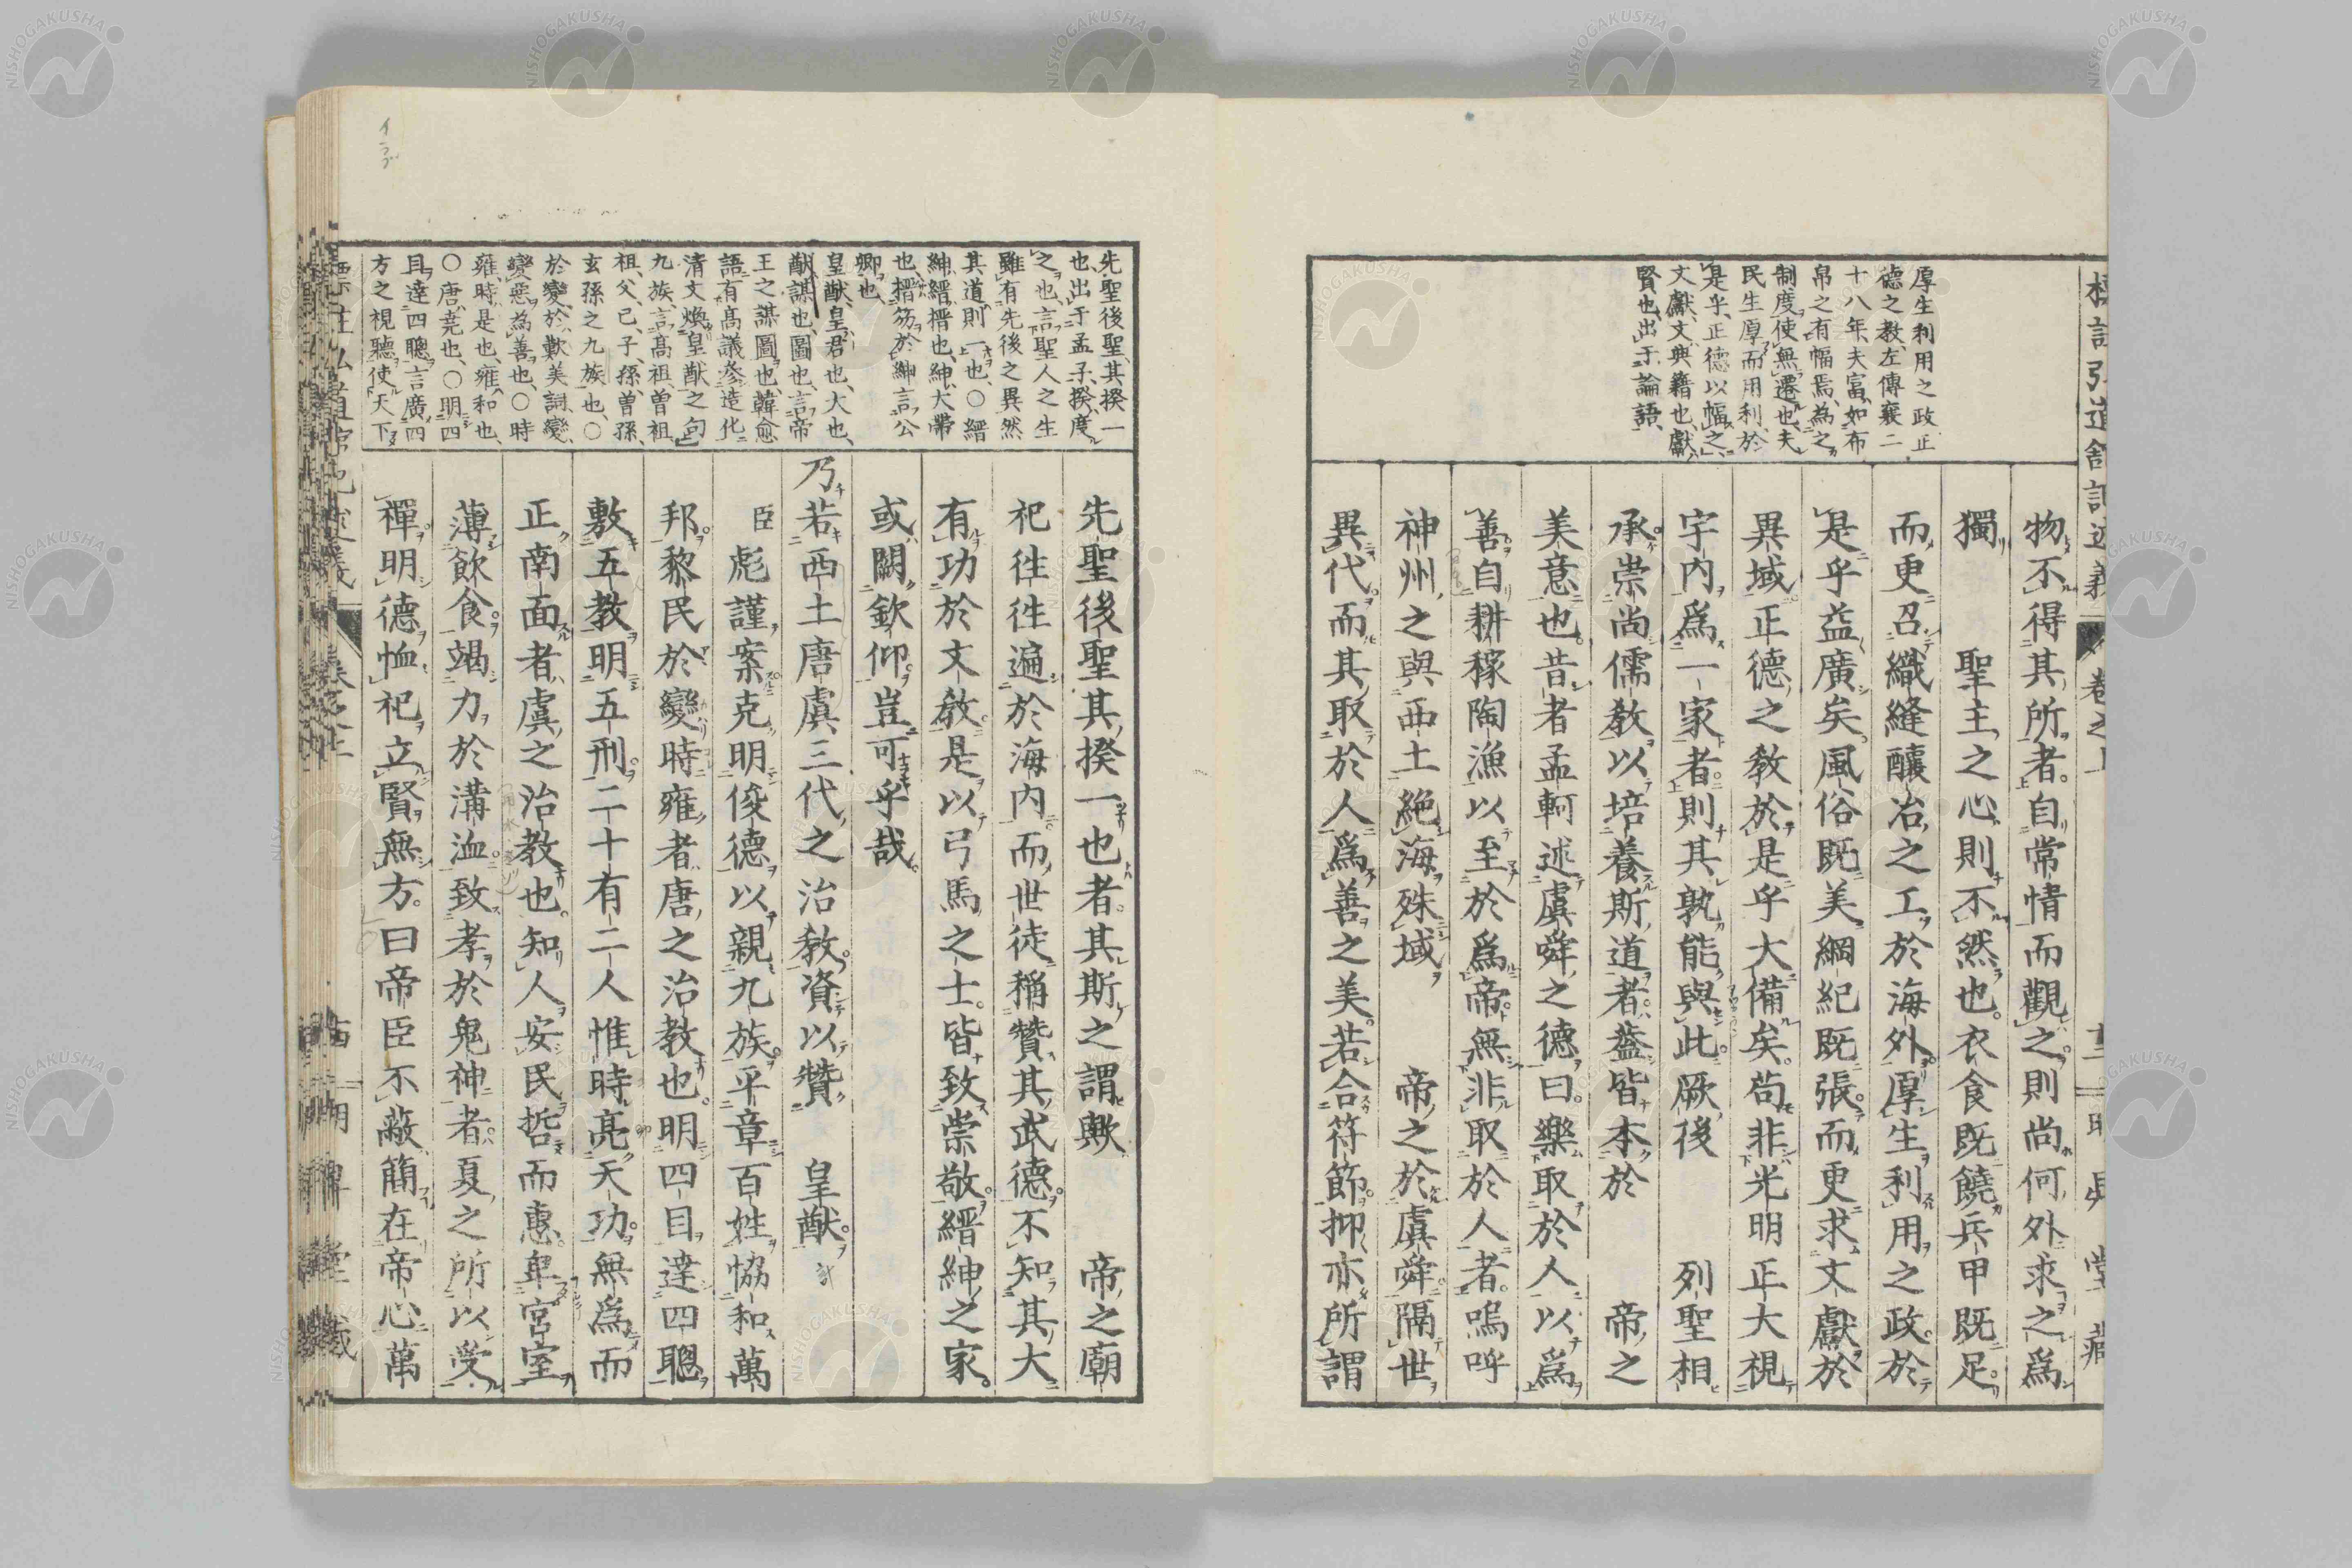 厚生利用之政正
德之教、左傳襄二
十八年、夫富、如布
帛之有幅焉、為之
制度、使無遷也、夫
民生厚而用利、於
是乎、正德以幅之、
文獻、文典籍也、獻、
賢也、出于論語、
物不得其所者。自常情而觀之。則尚何外求之爲
獨　聖主之心則不然也。衣食既饒兵甲既足。
而更召織縫釀冶之工於海外。厚生利用之政。於
是乎益廣矣。風俗既美。綱紀既張。而更求文獻於
異域。正德之教於是乎大備矣。苟非光明正大視
宇内爲一家者。則其孰能與此。厥後　列聖相
承崇尚儒教以培養斯道者。蓋皆本於　帝之
美意也。昔者孟軻述虞舜之德曰。樂取於人以爲
善。自耕稼陶漁以至於爲帝。無非取於人者。嗚呼
神州之與西土絶海殊域　帝之於虞舜。隔世
異代。而其取於人爲善之美。若合符節。抑亦所謂
先聖後聖、其揆一
也、出于孟子、揆、度
之也、言聖人之生
雖有先後之異然
其道則一也、〇縉
紳、縉搢也、紳大帶
也、搢笏於紳言公
卿也、
皇猷、皇君也、大也、
猷、謀也、圖也、言帝
王之謀圖也、韓愈
語、有高議參造化
清文煥皇猷之句
九族、言高祖曾祖
祖、父、己、子、孫、曾孫、
玄孫之九族也、〇
於變、於歎美詞、變、
變惡為善也、〇時
雍、時是也、雍、和也、
〇唐、堯也、〇明四
目達四聰、言廣四
方之視聽使天下
先聖後聖其揆一也者。其斯之謂歟　帝之廟
祀往往遍於海内。而世徒稱贊其武德。不知其大
有功於文教。是以弓馬之士。皆致崇敬。縉紳之家。
或闕欽仰。豈可乎哉。
乃若西土唐虞三代之治教。資以贊　皇猷。
臣彪謹案克明俊德以親九族。平章百姓協和萬
邦。黎民於變時雍者。唐之治教也。明四目達四聰。
敷五教明五刑。二十有二人惟時亮天功。無爲而
正南面者、虞之治教也。知人安民哲而惠。卑宮室
薄飲食。竭力於溝洫。致孝於鬼神者。夏之所以受
禪。明德恤祀立賢無方。曰帝臣不蔽。簡在帝心萬